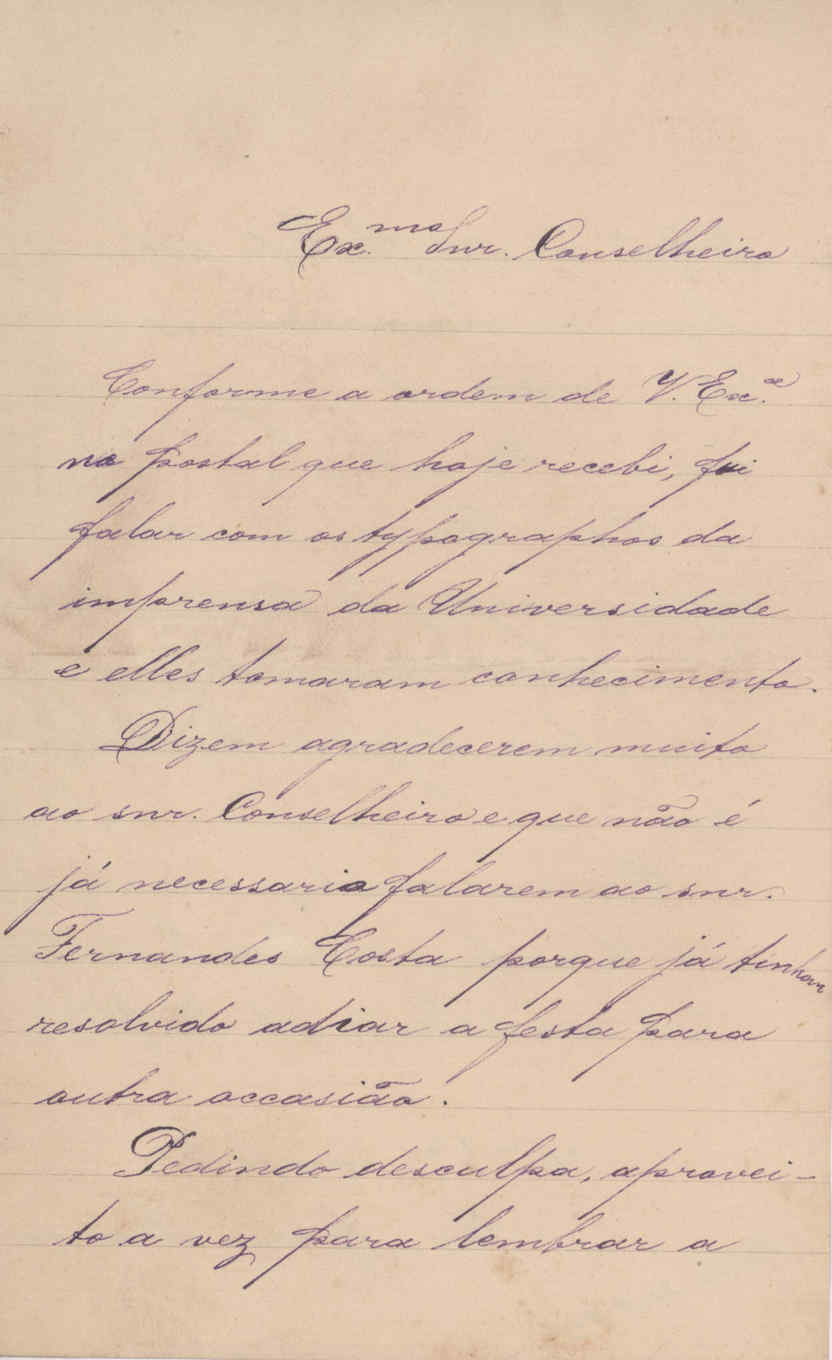 Ex.mo Snr. Conselheiro
Conforme a ordem de V. Ex.ª
no postal que hoje recebi, fui
falar com os typographos da
imprensa da Universidade
e elles tomaram conhecimento.
Dizem agradecerem muito
ao snr. Conselheiro e que não é
já necessario falarem ao snr.
Fernandes Costa porque já tinham
resolvido adiar a festa para
outra occasião.
Pedindo desculpa, aprovei-
to a vez para lembrar a